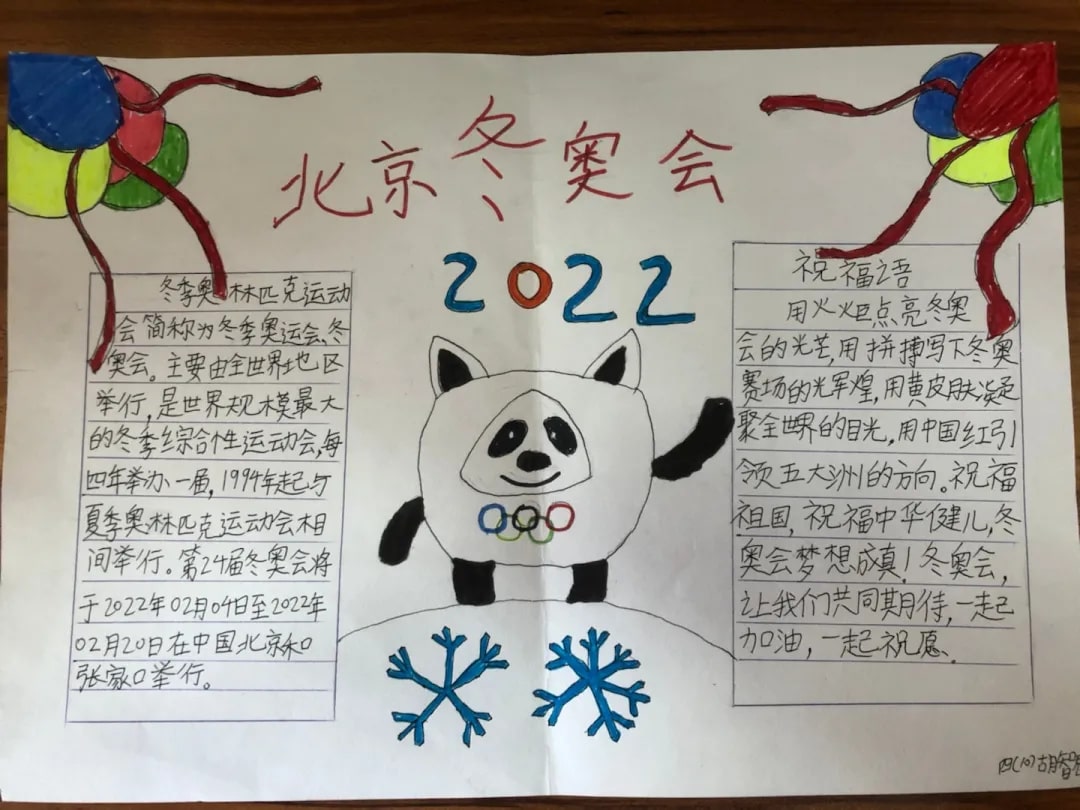 北京冬奥会
2022
冬季奥林匹克运动
会简称为冬季奥运会、冬
奥会。主要由全世界地区
举行,是世界规模最大
的冬季综合性运动会,每
四年举办一届,1994年起与
夏季奥林匹克运动会相
间举行。第24届冬奥会将
于2022年02月04日至2022年
02月20日在中国北京和
张家口举行。
祝福语
用火炬点亮冬奥
会的光芒,用拼搏写下冬奥
赛场的光辉煌,用黄皮肤凝
聚全世界的目光,用中国红引
领五大洲的方向。祝福
祖国,祝福中华健儿,冬
奥会梦想成真!冬奥会,
让我们共同期待,一起
加油,一起祝愿.
四(10)胡智